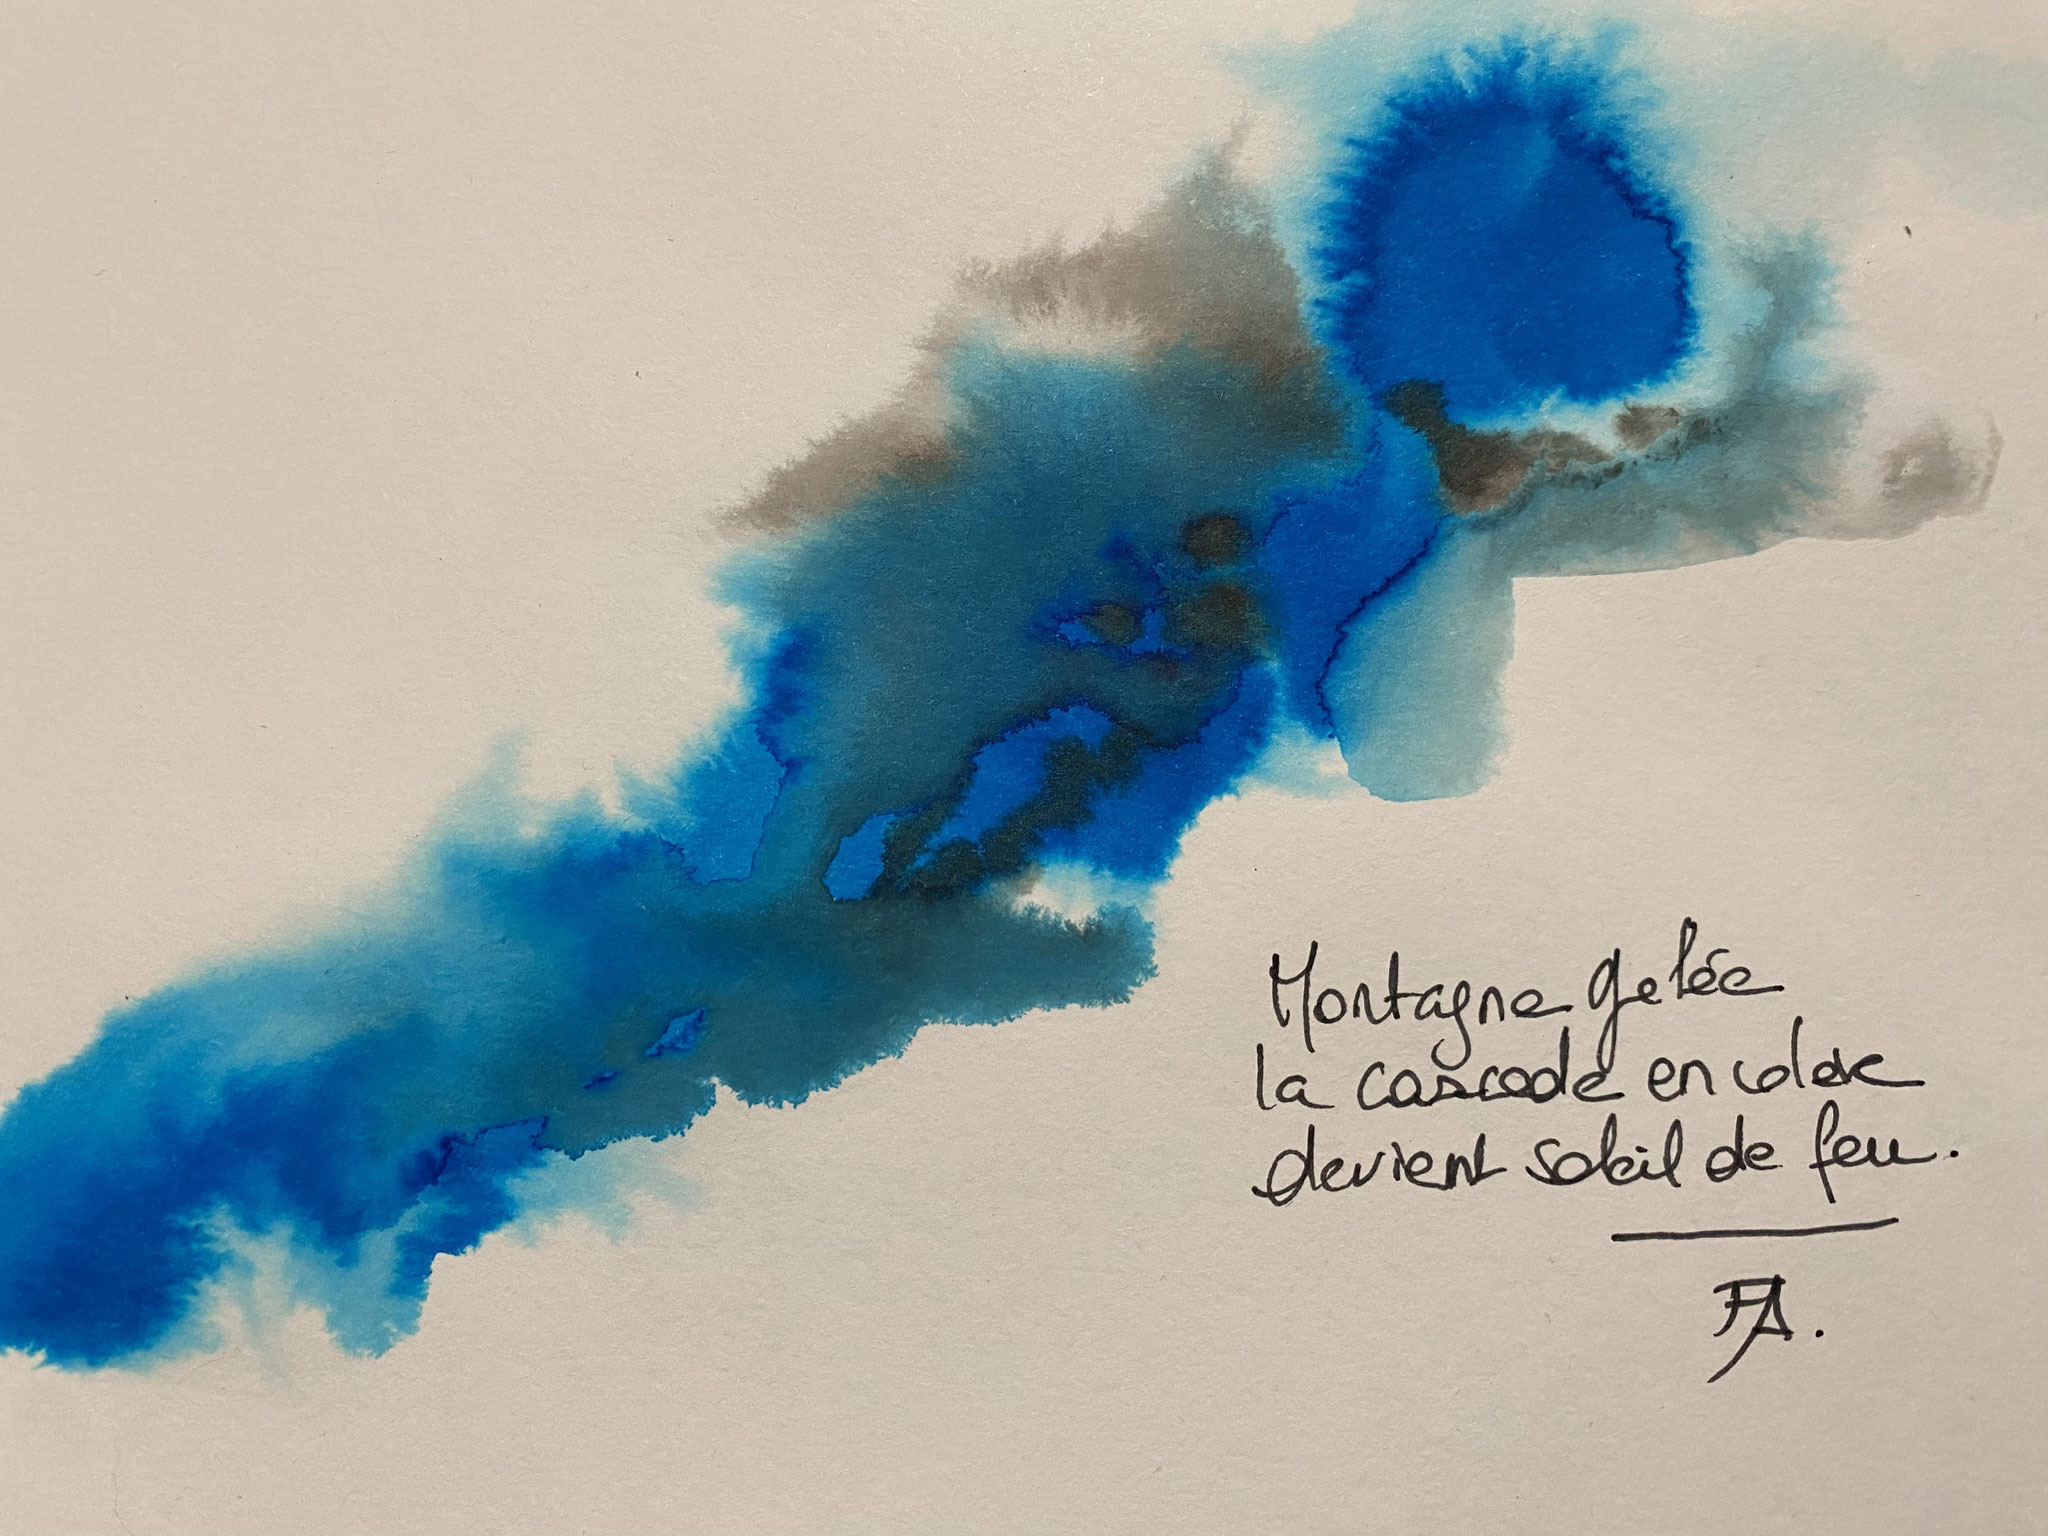 Montagne gelée
la cascade en colère
devient soleil de feu.
FA.